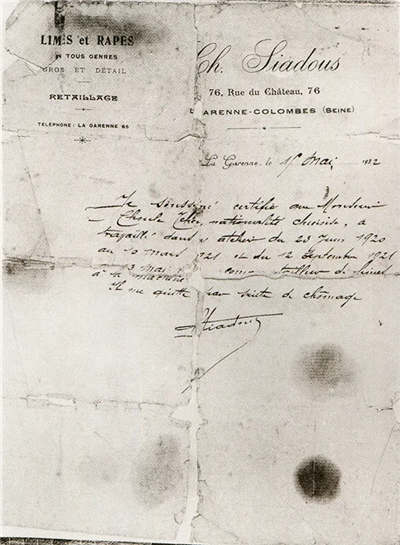 LIMES et RAPES
TOUS GENRES
GROS ET DÉTAIL
RETAILLAGE
TÉLÉPHONE: LA GARENNE 65
Ch. Siadous
76, Rue du Château, 76
GARENNE-COLOMBES (SEINE)
La Garenne, le Mai
Je soussigné certifie que Monsieur
nationalité chinoise, a
travaillé dans atelier du 23 Juin 1920
au 10 mars 1921 et du 12 Septembre 1921
3 mai comme tailleur de limes
à la machine
Il me quitte par suite de chômage
Siadous